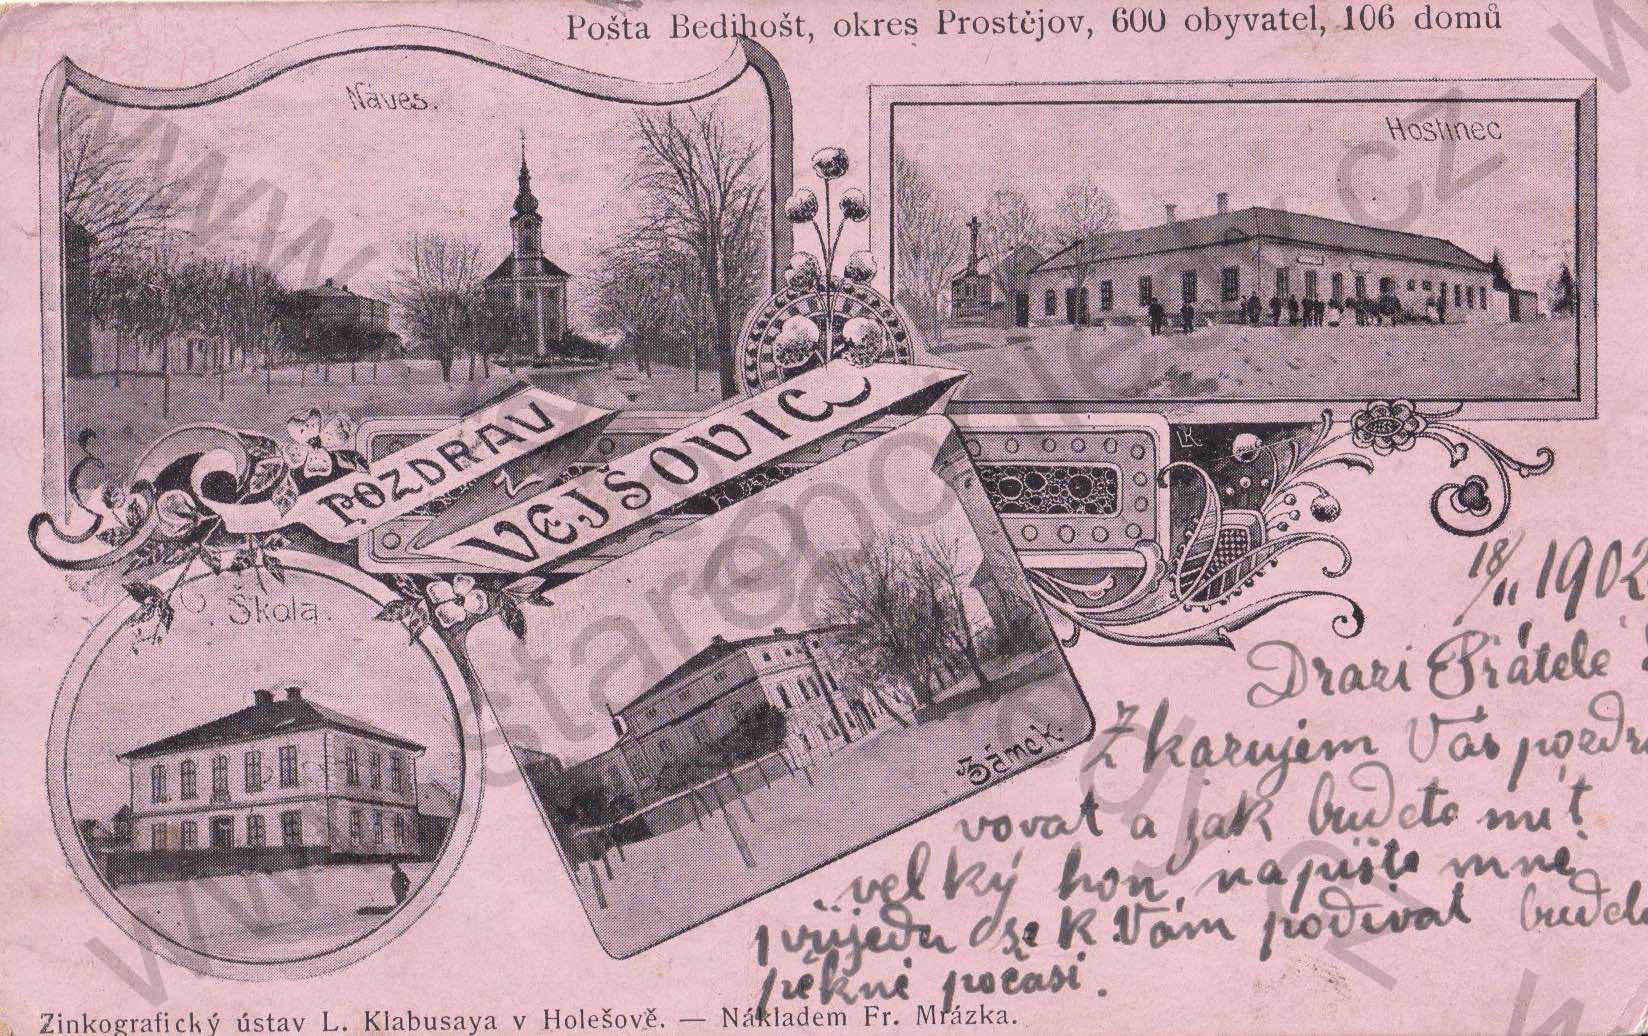 Pošta Bedihošt, okres Prostějov, 600 obyvatel, 106 domů
Náves.
Hostinec
POZDRAV
Z
VEJŠOVIC
Škola.
Zámek.
18/11 1902
Drazí Přátelé
Zkazujem Vás pozdra
vovat a jak budete mít
velký hon, napište mně
přijedu se k Vám podivat budeli
pěkné počasí.
Zinkografický ústav L. Klabusaya v Holešově. — Nákladem Fr. Mrázka.
www.starepohlednice.cz